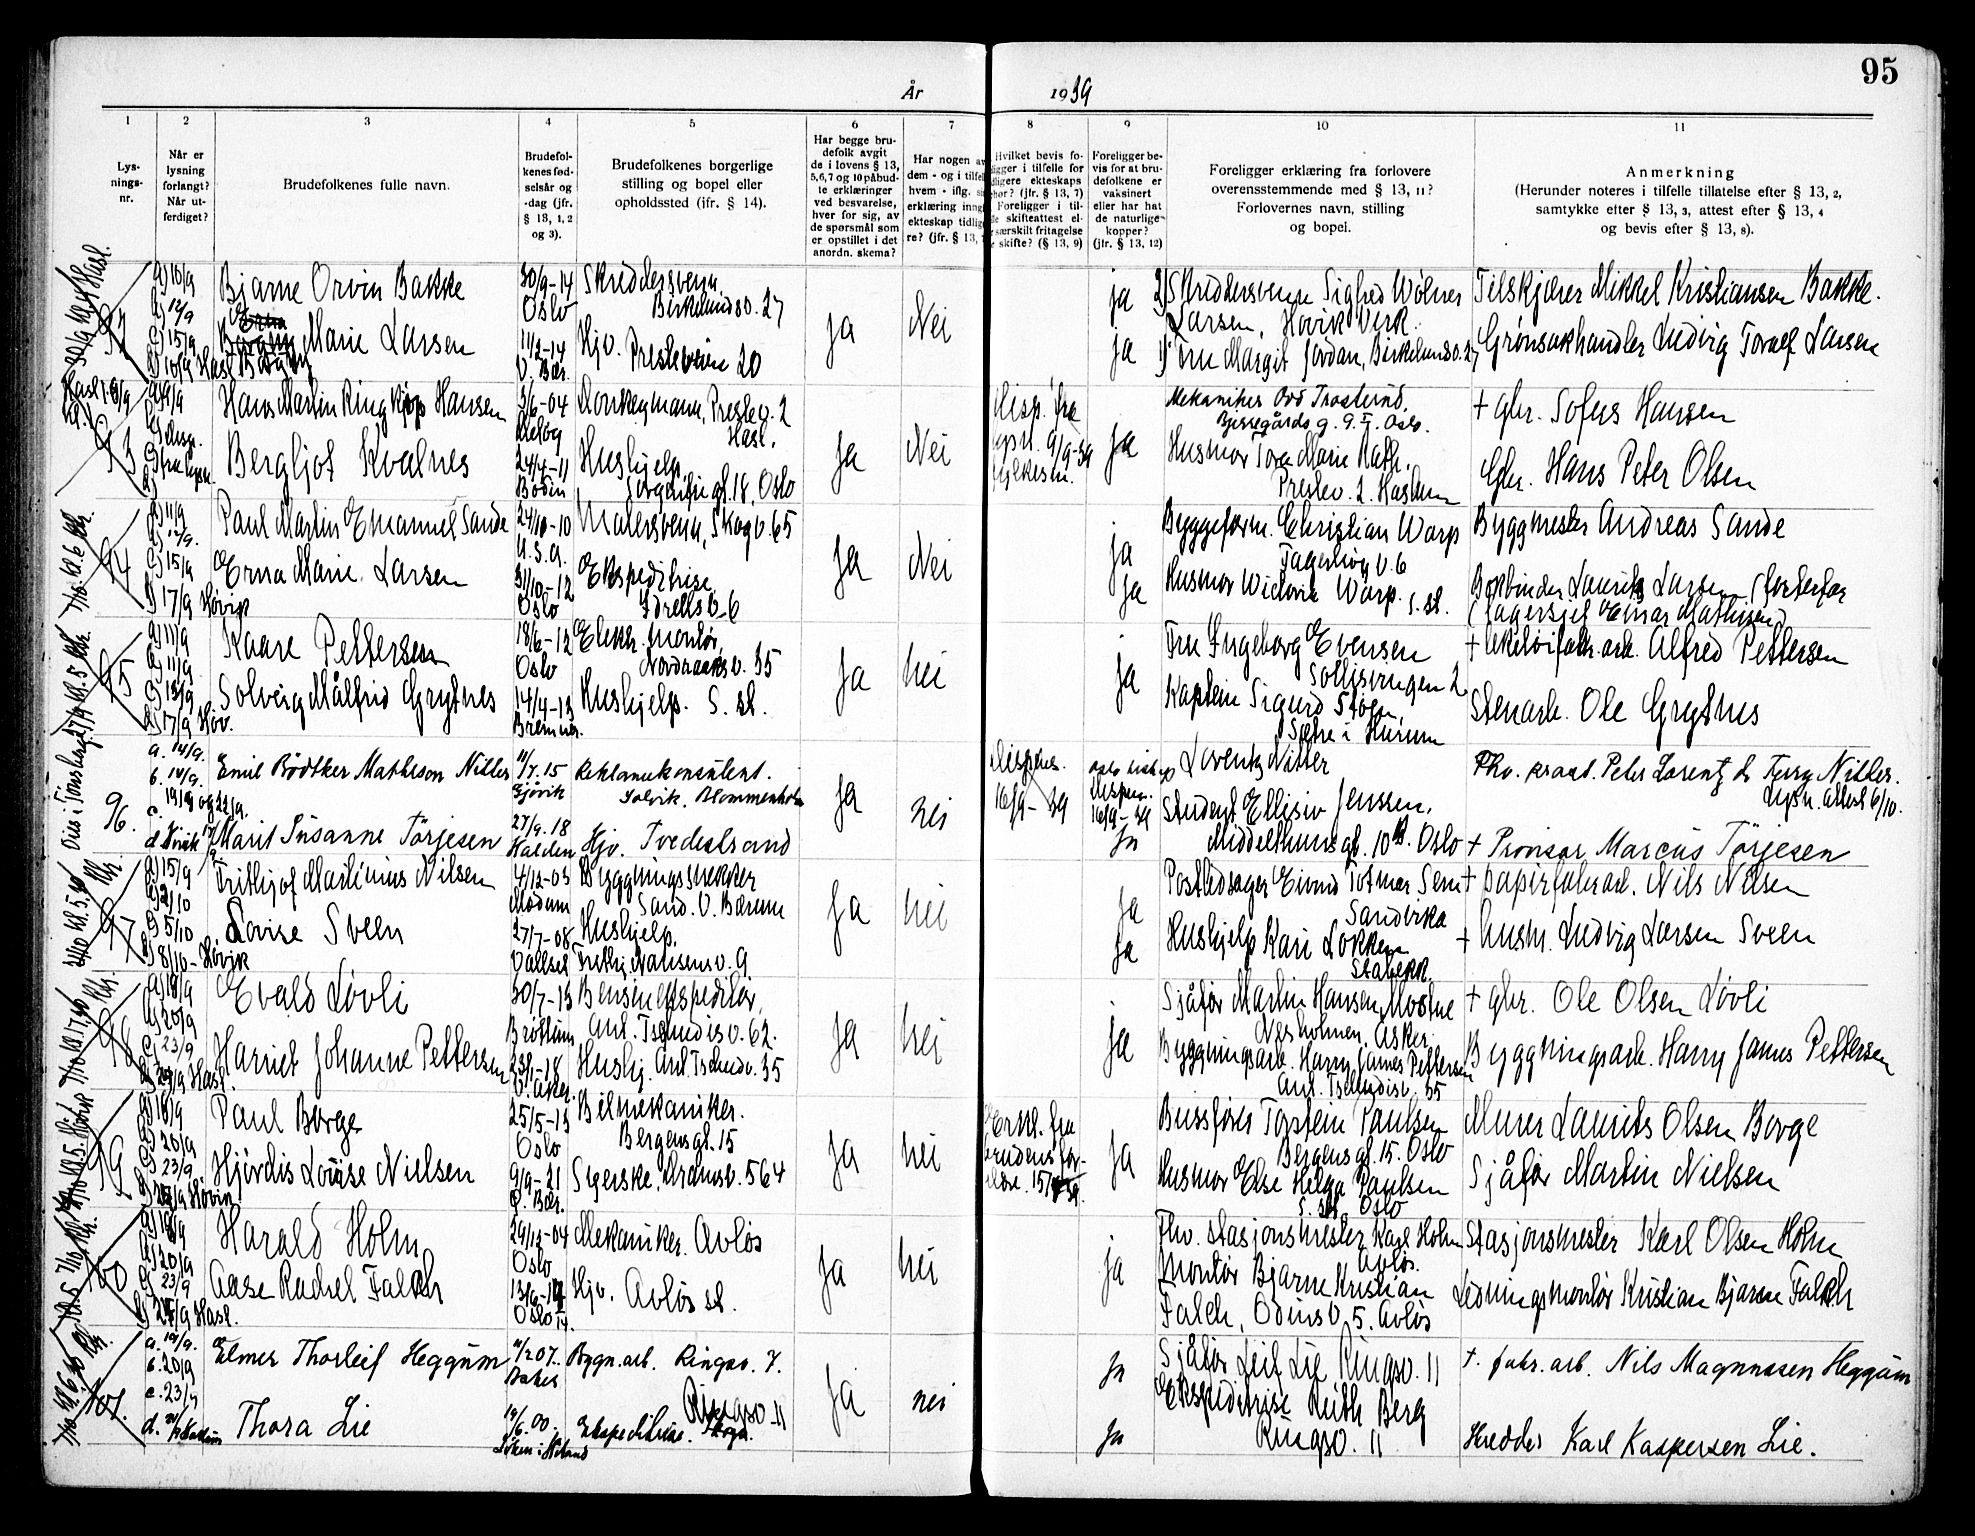 95
År 1939
1 2 3 4 5 6 7 8 9 10 11
Lys-
nings-
nr.
Når er
lysning
forlangt?
Når ut-
ferdiget?
Brudefolkenes fulle navn.
Brudefol-
kenes fød-
selsår og
-dag (jfr.
§ 13, 1, 2
og 3).
Brudefolkenes borgerlige
stilling og bopel eller
opholdssted (jfr. § 14).
Har begge bru-
defolk avgit
de i lovens § 13,
5,6,7 og 10 påbud-
te erklæringer
ved besvarelse,
hver for sig, av
de spørsmål som
er opstillet i det
anordn. skema?
Har nogen av
dem - og i tilfel
hvem - iflg.
erklæring inng
ekteskap tidlig
re? (jfr. § 13,
Hvilket bevis fo-
ligger i tilfelle for
dligere ekteskaps
hør? (jfr. § 13, 7)
Foreligger i til-
le skifteattest el-
særskilt fritagelse
skifte? (§ 13, 9)
Foreligger be-
vis for at bru-
defolkene er
vaksinert
eller har hat
de naturlige
kopper?
(jfr. § 13, 12)
Foreligger erklæring fra forlovere
overensstemmende med § 13, 11?
Forlovernes navn, stilling
og bopel.
Anmerkning
(Herunder noteres i tilfelle tillatelse efter § 13, 2,
samtykke efter § 13, 3, attest efter § 13, 4
og bevis efter § 13, 8).
a) 10/9
12/9
c) 15/9
10/9 Hasl
Bjarne Orvin Bakke
Marie Larsen
30/9-14
Oslo
11/2-14
V. Bær.
Skreddersvenn,
Birkelundsv. 27
Hjv. Presteveien 20
Ja
Nei
ja
ja
2) Skreddersvenn Sigfred Wølner
Larsen, Høvik Verk.
1) Fru Margit Jordan, Birkelundsv. 27
Filskjærer Mikkel Kristiansen Bakke.
Grønsakhandler Ludvig Toralf Larsen
93
Hans Martin Ringkjøp Hansen
Bergljot Kvalnes
3/6-04
24/4-11
Bodin
Donkeymann, Prestev. 2
Hasl.
Hushjelp
gt. 18, Oslo
Ja
Nei
Disp. fra
lysn. 9/9-39
fylkesm.
Ja
Mekaniker Ove Trosterud,
g. 9. I. Oslo.
Husmor Tora Marie Rath.
Prestev. 2. Haslum
+ gbr. Sofus Hansen
Gbr. Hans Peter Olsen
94
a) 11/9
12/9
c) 15/9
d) 17/9 Høvik
Paul Martin Emanuel Sande
Erna Marie Larsen
24/10-10
U.S.A.
31/10-12
Oslo
Malersvenn, Skogv. 65
Ekspeditrise,
Idrettsv. 6
Ja
Nei
ja
ja
Byggeform. Christian Warp
Fagerhøy v. 6
Husmor Widvis Warp. s. st.
Byggmester Andreas Sande
Bokbinder Laurits Larsen (fosterfar
lagersjef Einar Mathisen)
95
a) 11/9
11/9
15/9
d) 17/9 Høv.
Kaare Pettersen
Solveig Målfrid Grytnes
18/6-12
Oslo
14/4-13
Bremnes
Elektr. montør,
Nordraaksv. 35
Hushjelp. s. st.
Ja
nei
ja
Fru Ingeborg Evensen
Sollisvingen 2
Kaptein Sigurd Støen,
Sætre i Hurum
+ skotøifabr. arb. Alfred Pettersen
Stenarb. Ole Grytnes
96.
a. 14/9.
b. 14/9.
c. 19/9 og 22/9.
Emil Bødtker Mathison Nitter
Marit Susanne Tørjesen
11/7.15
Gjøvik
27/9.18
Halden
Reklamekonsulent.
Solvik. Blommenholm
Hjv. Tvedestrand
Ja
nei
16/9-39
Oslo
dispen.
16/9-39
ja
Lorentz Nitter
Student Ellisiv Jenssen,
Middelthunsgt. 10B. Oslo
Lorentz Nitter.
Lysn. attest 6/10.
+ Provisor Marcus Tørjesen
97
a) 15/9
2/10
c) 5/10
d) 8/10 - Høvik
Frithjof Martinius Nilsen
Lovise Sveen
4/12-03
Modum
27/7-08
Vallset
Bygningssnekker
Sand. V. Bærum
Hushjelp.
Frithj. Nansens v. 9
Ja
nei
ja
ja
Eivind Totmar Sem
Sandvika
Hushjelp Kari Løkken
Stabekk
+ papirfabr. arb. Nils Nilsen
+ husm. Ludvig Larsen Sveen
98
a) 18/9
20/9
c) 23/9
Hasl.
Evald Løvli
Harriet Johanne Pettersen
30/7-13
Brøttum
23/1-18
V. Aker.
Bensinekspeditør,
Ant. Tschudis v. 62.
Hushj. Ant. Tschudiv. 35
Ja
nei
ja
Sjåfør Martin Hansen Mostue
Nesholmen, Asker.
Bygningsarb. Harry James Pettersen
Ant. Tschudisv. 35
+ gbr. Ole Olsen Løvli
Bygningsarb. Harry James Pettersen
99
18/9
20/9
23/9
Høvik
Paul Borge
Hjørdis Louise Nielsen
25/5-13
Oslo
9/9-21
Ø. Bær.
Bilmekaniker.
Bergensgt. 15
Syerske, Dramsv. 564
Ja
nei
Erkl. fra
brudens for-
eldre. 15/9-39
ja
Bussfører Torstein Paulsen
Bergensgt. 15. Oslo
Husmor Else Helga Paulsen
s. st. Oslo
Murer Laurits Olsen Borge
Sjåfør Martin Nielsen
100
a) 19/9
20/9
23/9
Hasl.
Harald Holm
Aase Rachel Falch
29/12-04
Oslo
Oslo
Mekaniker. Avløs
Hjv. Avløs st.
Ja
nei
ja
Fhv. stasjonsmester Karl Holm
Avløs.
Montør Bjarne Kristian
Falch, Odins v. 5. Avløs
Stasjonsmester Karl Olsen Holm
Ledningsmontør Kristian Bjarne Falch
101.
a. 19/9.
b. 20/9
c. 23/9
Elmer Thorleif Heggum
Thora Lie
11/2 07.
14/6.00.
Bygn. arb. Ringsv. 7.
Ringsv. 11
Ekspeditrise.
Ja
nei
ja
ja
Sjåfør Leif Lie Ringsv. 11
Ekspeditrise Ruth Berg
Ringsv. 11
+. fabr. arb. Nils Magnussen Heggum
Karl Kaspersen Lie.